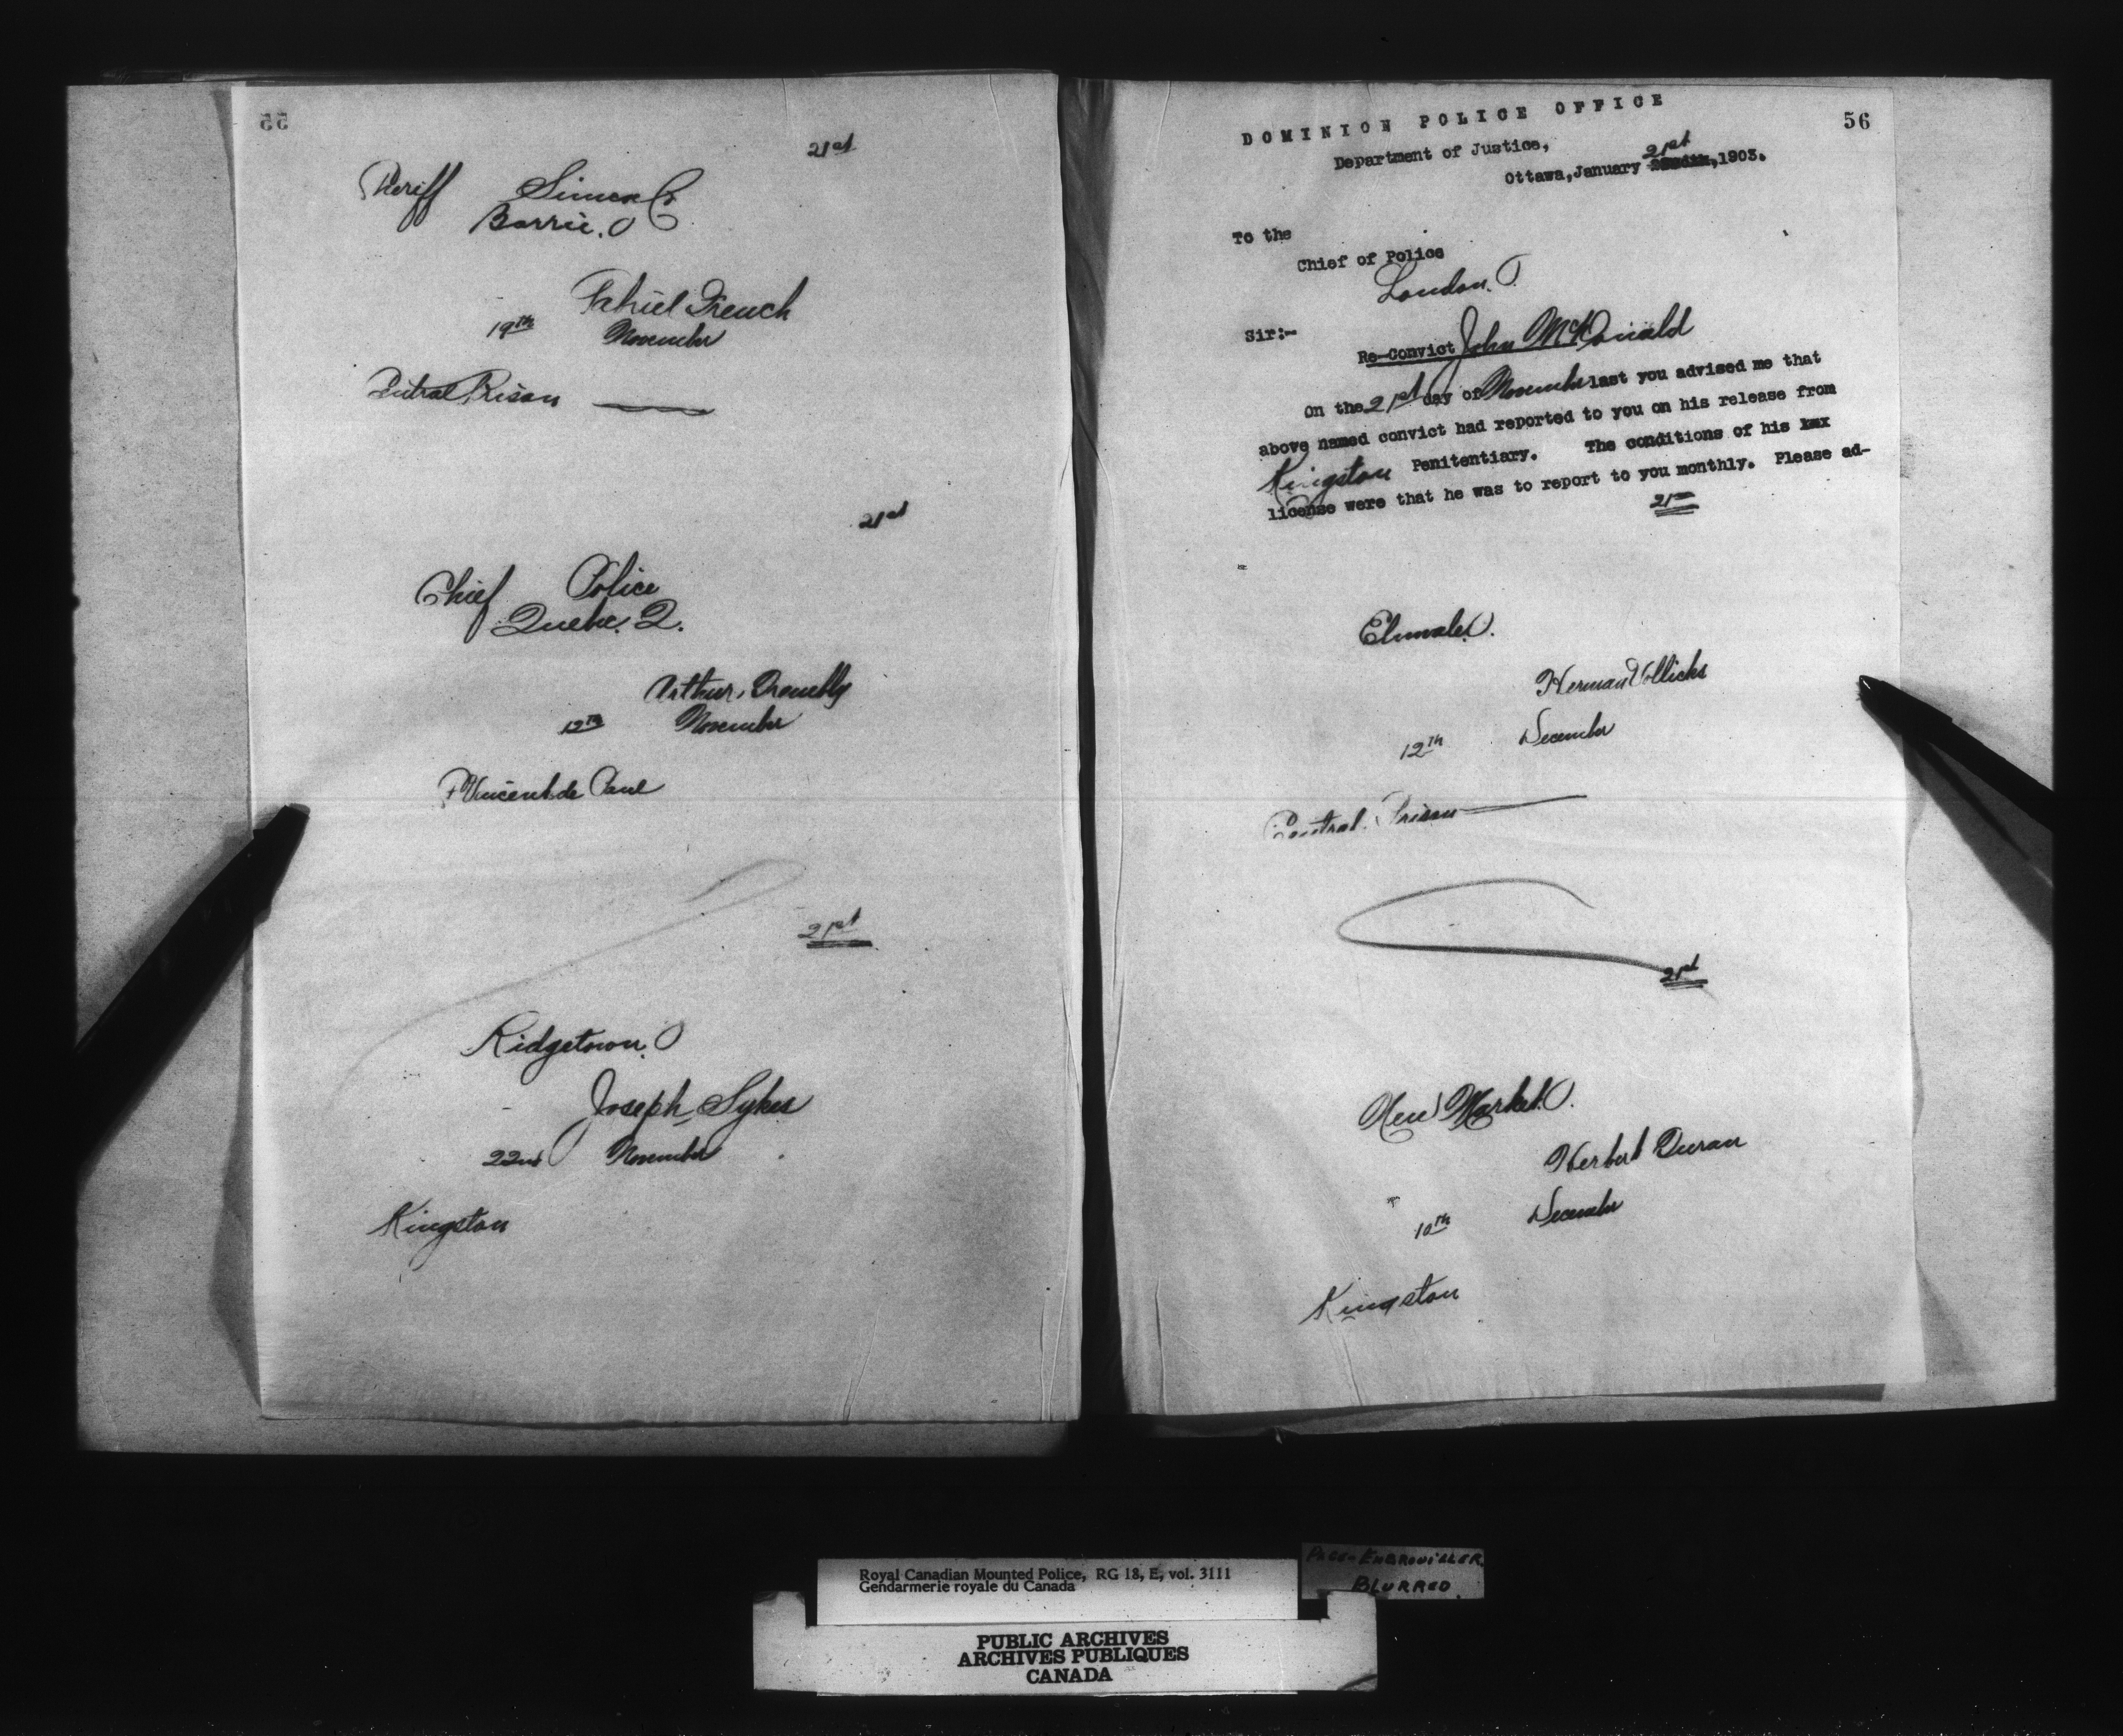 55
21st
Sheriff Simcoe Co
Barrie. O
French
19th November
Central Prison
21st
Chief Police
Quebec. Q.
Arthur
12th November
St Vincent de Paul
21st
Ridgetown. O
Joseph Sykes
22nd November
Kingston
56
DOMINION POLICE OFFICE
Department of Justice,
21st
Ottawa, January 1903.
To the
Chief of Police
London. O.
Sir:-
Re-Convict John McDonald
On the 21st day of November last you advised me that
above named convict had reported to you on his release from
Kingston Penitentiary. The conditions of his
license were that he was to report to you monthly. Please ad-
21st
Elmvale. O.
Herman Vollicks
12th December
Central Prison
21st
New Market. O.
Herbert Duran
10th December
Kingston
Royal Canadian Mounted Police, RG 18, E, vol. 3111
Gendarmerie royale du Canada
PAGE EMBROUILLER
BLURRED
PUBLIC ARCHIVES
ARCHIVES PUBLIQUES
CANADA